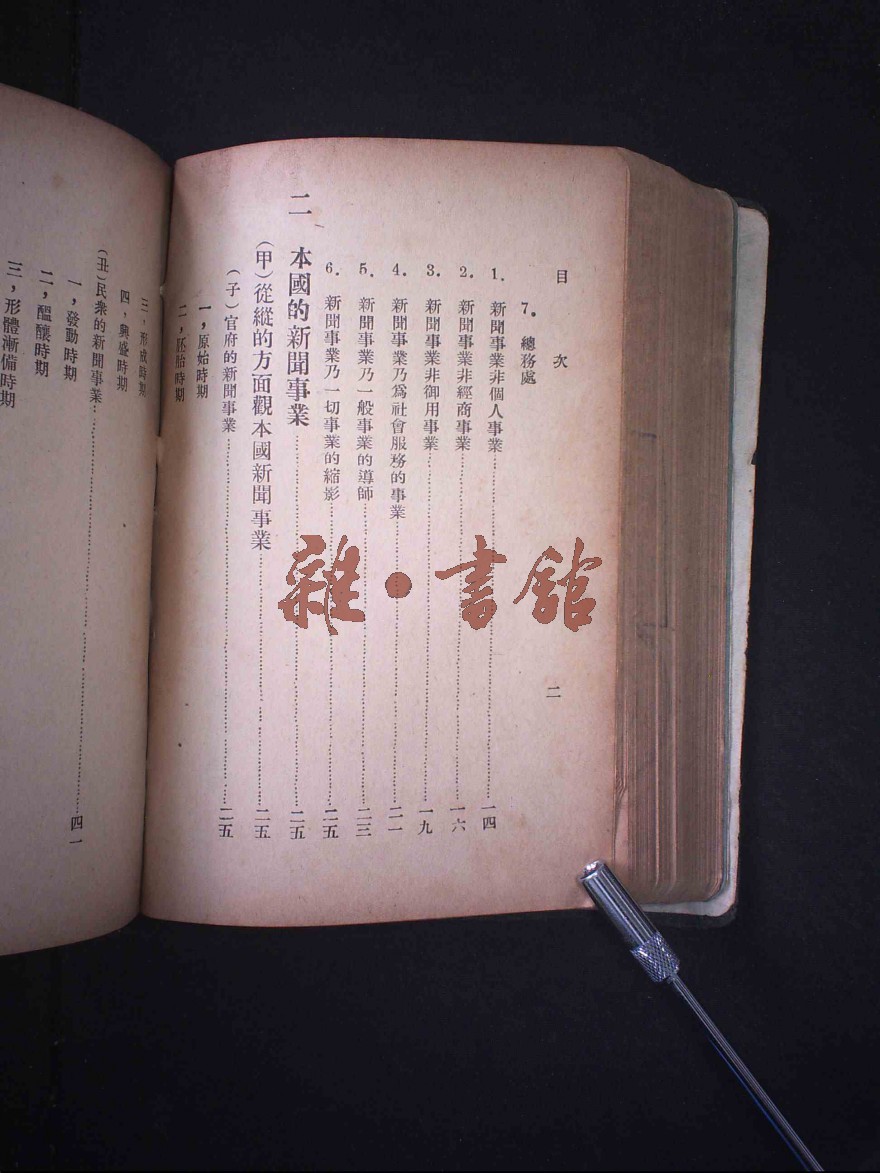 目次
二
7. 總務處
1. 新聞事業非個人事業……一四
2. 新聞事業非經商事業……一六
3. 新聞事業非御用事業……一九
4. 新聞事業乃為社會服務的事業……二一
5. 新聞事業乃一般事業的導師……二三
6. 新聞事業乃一切事業的縮影……二五
二 本國的新聞事業……二五
(甲)從縱的方面觀本國新聞事業……二五
(子)官府的新聞事業……二五
一，原始時期
二，胚胎時期
三，形成時期
四，興盛時期
(丑)民衆的新聞事業……四一
一，發動時期
二，醞釀時期
三，形體漸備時期
雜·書館